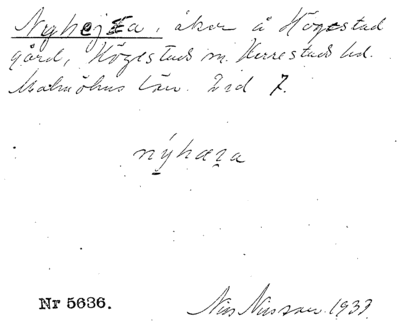 åkor å Högestad
gård, Högestads sn. Herrestads hd.
Malmöhus län. Lid 7.
nýhæʒa
Nr 5636.
Nils Nilsson 1933